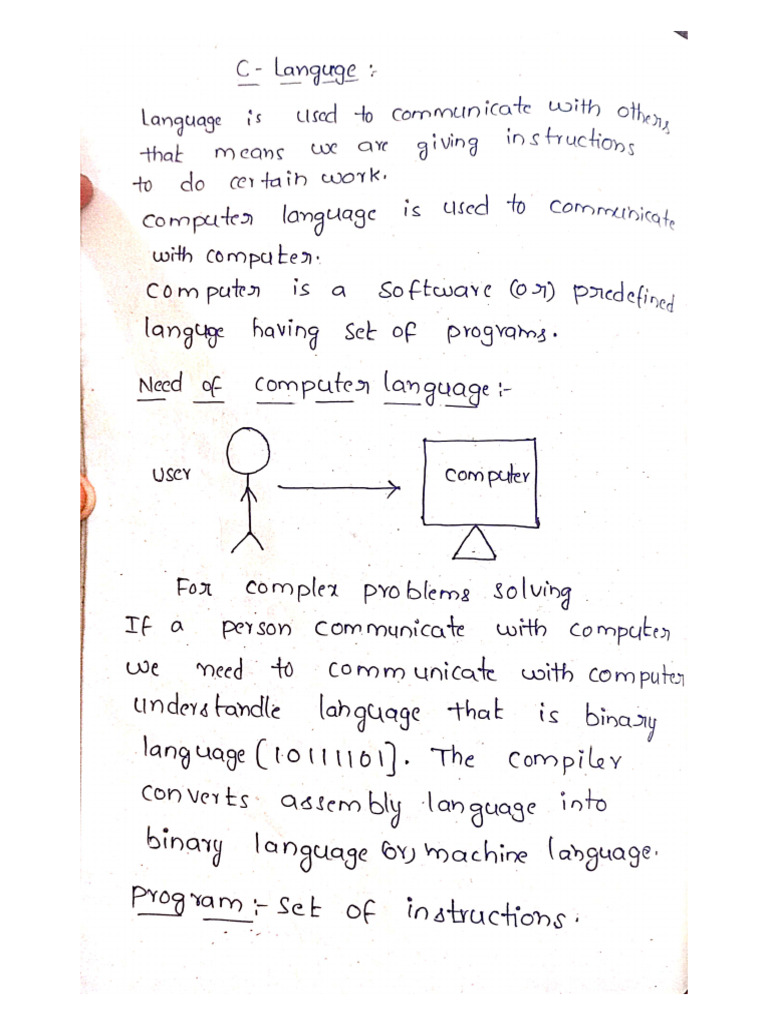 C - Languge :
language is used to communicate with others
that means we are giving instructions
to do certain work.
computer language is used to communicate
with computer.
computer is a software (or) predefined
languge having set of programs.
Need of computer language :-
user
computer
For complex problems solving
If a person communicate with computer
we need to communicate with computer
understandle language that is binary
language (10111101]. The compiler
converts assembly language into
binary language (or) machine language.
program :- set of instructions.